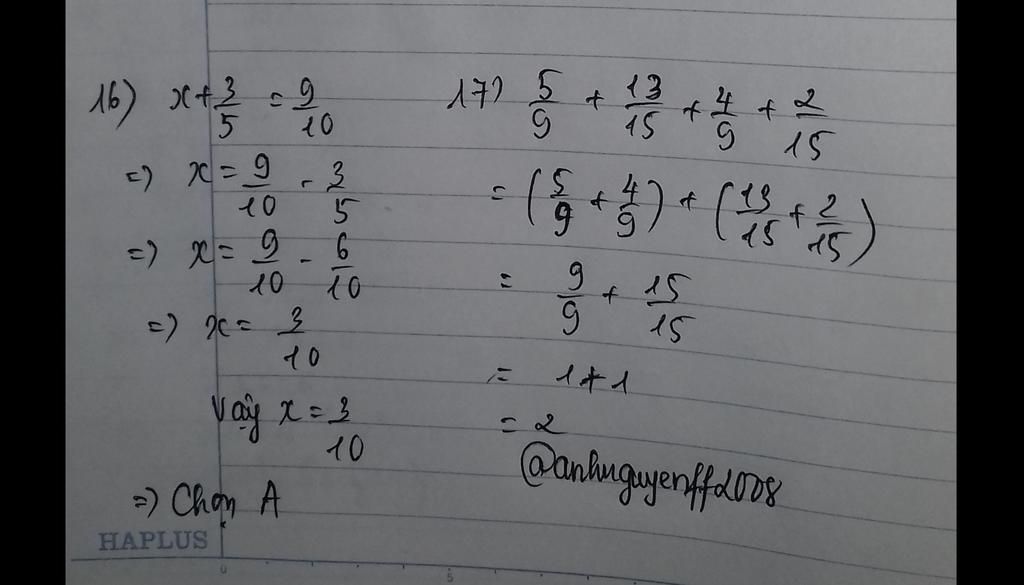 16) x + 3/5 = 9/10
=) x = 9/10 - 3/5
=) x = 9/10 - 6/10
=) x = 3/10
Vậy x = 3/10
=) Chọn A
17) 5/9 + 13/15 + 4/9 + 2/15
= (5/9 + 4/9) + (13/15 + 2/15)
= 9/9 + 15/15
= 1 + 1
= 2
@anhnguyenff2008
HAPLUS
0 5